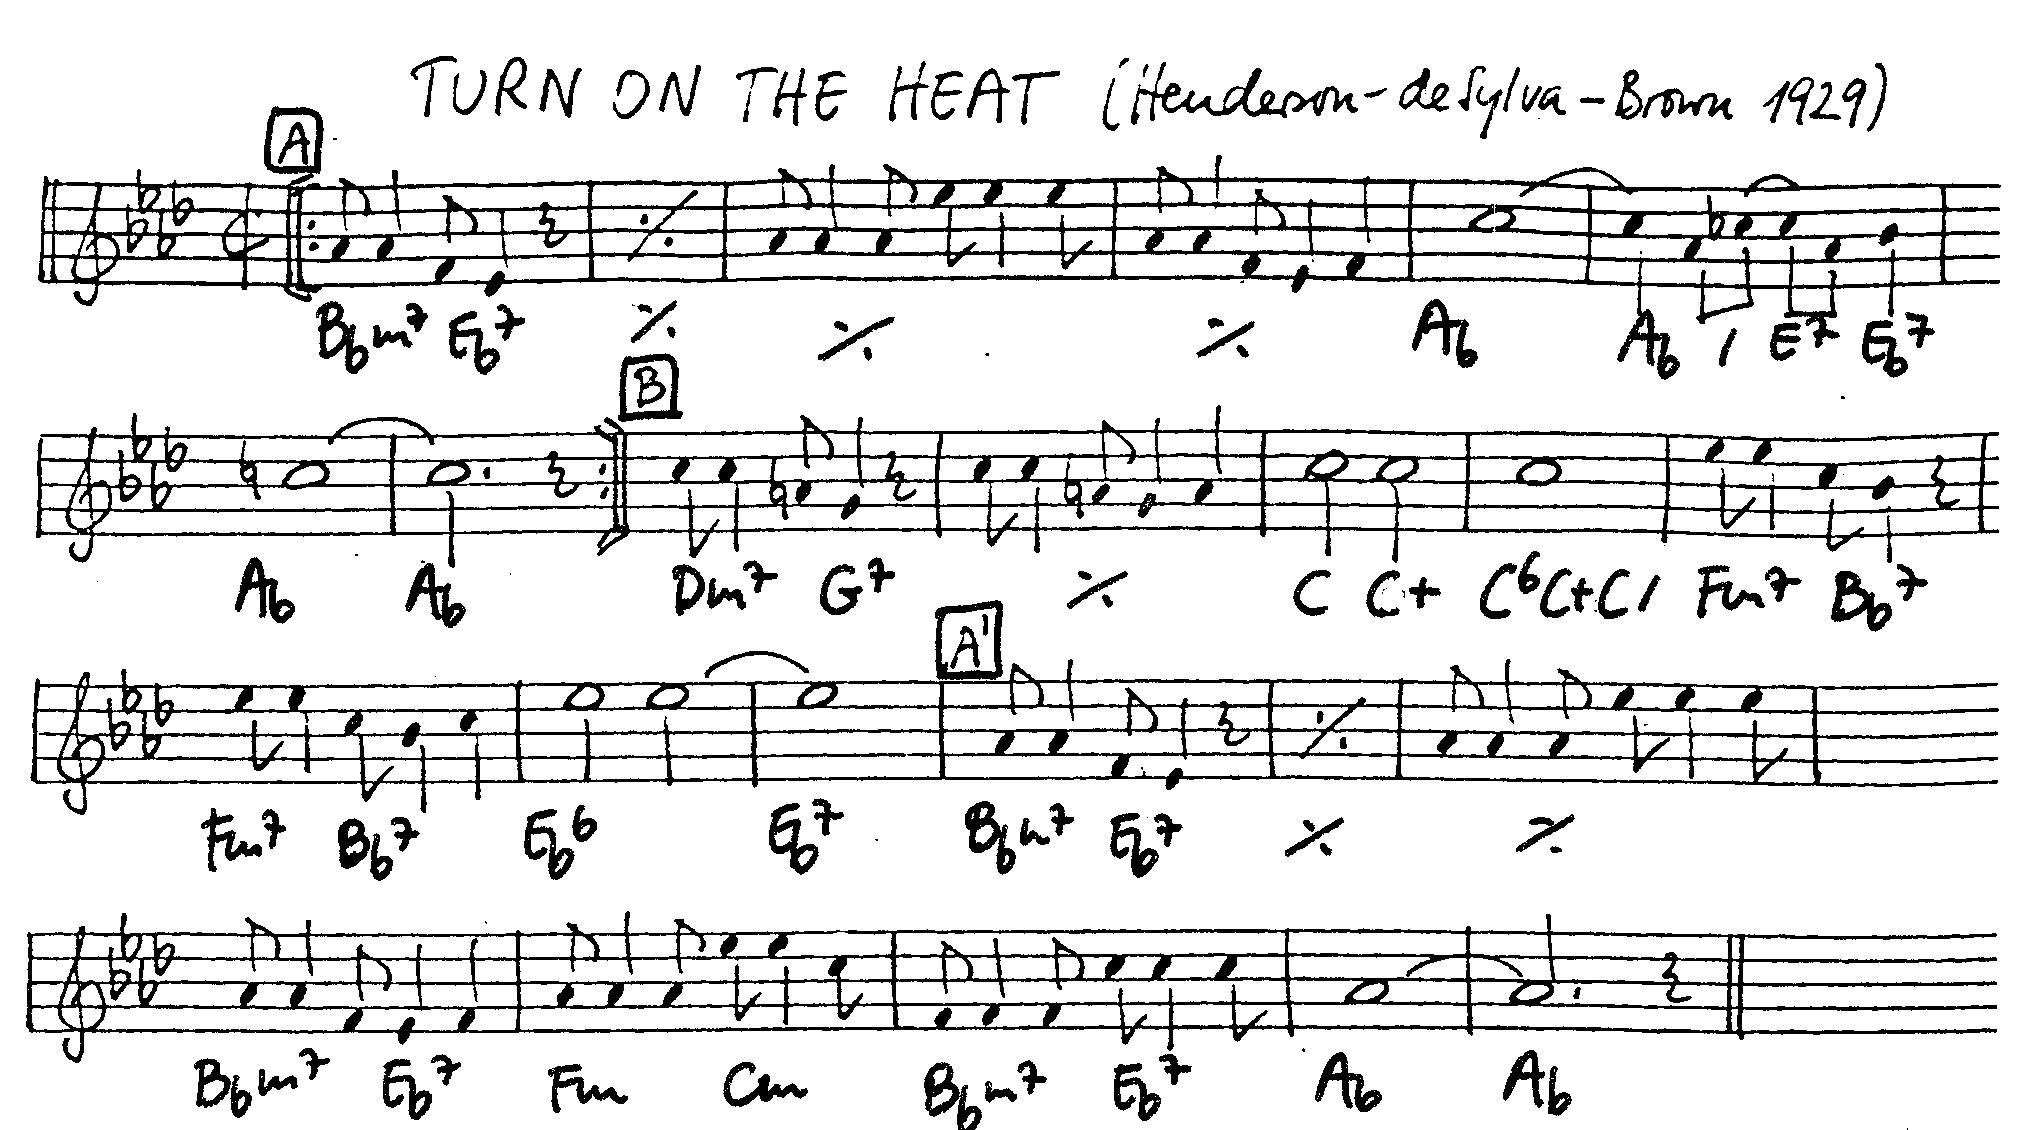 TURN ON THE HEAT (Henderson-deSylva-Brown 1929)
A
Bbm7 Eb7 ٪ ٪ ٪ Ab Ab / E7 Eb7
B
Ab Ab Dm7 G7 ٪ C C+ C6 C+ C / Fm7 Bb7
A'
Fm7 Bb7 Eb6 Eb7 Bbm7 Eb7 ٪ ٪
Bbm7 Eb7 Fm Cm Bbm7 Eb7 Ab Ab